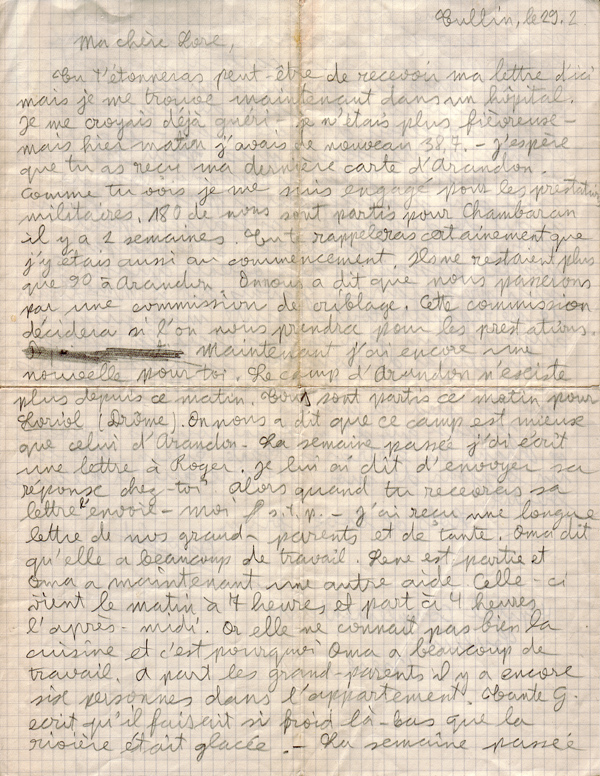 Tullin, le 29.2.
Ma chère Lore,
Tu t'étonneras peut-être de recevoir ma lettre d'ici
mais je me trouve maintenant dans un hôpital.
Je me croyais déjà guéri - je n'étais plus fiévreuse -
mais hier matin j'avais de nouveau 38,7. - J'espère
que tu as reçu ma dernière carte d'Arandon.
Comme tu vois je me suis engagé pour les prestations
militaires. 180 de nous sont partis pour Chambaran
il y a 2 semaines. Tu te rappeleras certainement que
j'y étais aussi au commencement. Ils ne restaient plus
que 90 à Arandon. On nous a dit que nous passerons
par une commission de criblage. Cette commission
décidera si l'on nous prendra pour les prestations.
Maintenant j'ai encore une
nouvelle pour toi. Le camp d'Arandon n'existe
plus depuis ce matin. Tous sont partis ce matin pour
Loriol (Drôme). On nous a dit que ce camp est mieux
que celui d'Arandon. La semaine passée j'ai écrit
une lettre à Roger. Je lui ai dit d'envoyer sa
réponse chez-toi. Alors quand tu recevras sa
lettre l'envoie-moi s.t.p. - J'ai reçu une longue
lettre de nos grand-parents et de tante. Oma dit
qu'elle a beaucoup de travail. Rene est partie et
Oma a maintenant une autre aide. Celle-ci
vient le matin à 7 heures et part à 4 heures
l'après-midi. Or elle ne connait pas bien la
cuisine et c'est pourquoi Oma a beaucoup de
travail. A part les grand-parents il y a encore
six personnes dans l'appartement. Tante G.
ecrit qu'il faisait si froid là-bas que la
rivière était glacée. - La semaine passée